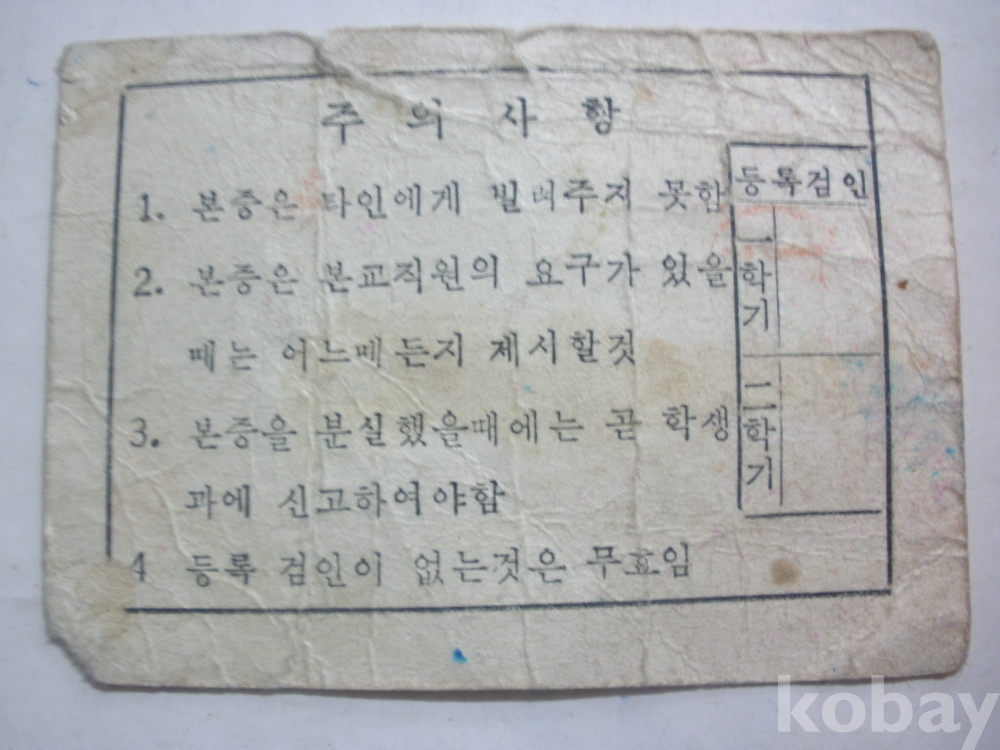 주의사항
1. 본증은 타인에게 빌려주지 못함
2. 본증은 본교직원의 요구가 있을
때는 어느때든지 제시할것
3. 본증을 분실했을때에는 곧 학생
과에 신고하여야함
4 등록 검인이 없는것은 무효임
등록검인
一학기
二학기
kobay